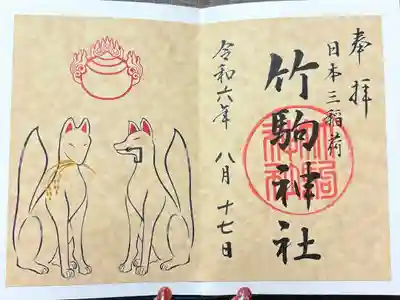 奉拝
日本三稲荷
竹駒神社
令和六年 八月 十七日